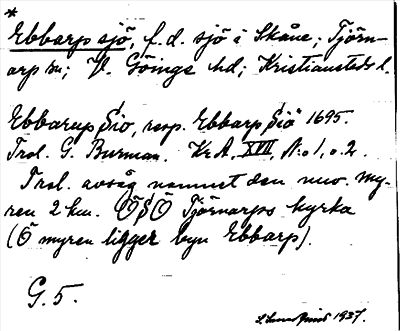 *
Ebbarp sjö, f.d. sjö i Skåne; Tjörn-
arp sn; V. Göinge hd; Kristianstads l.
Ebbarup Siö, resp. Ebbarp Siö 1695.
Trol. G. Burman. Kr. A. XVII, No 1, o. 2.
Trol. avsåg namnet den nuv. my-
ren 2 km. ÖSÖ Tjörnarps kyrka
(Ö myren ligger byn Ebbarp).
G. 5.
1937.